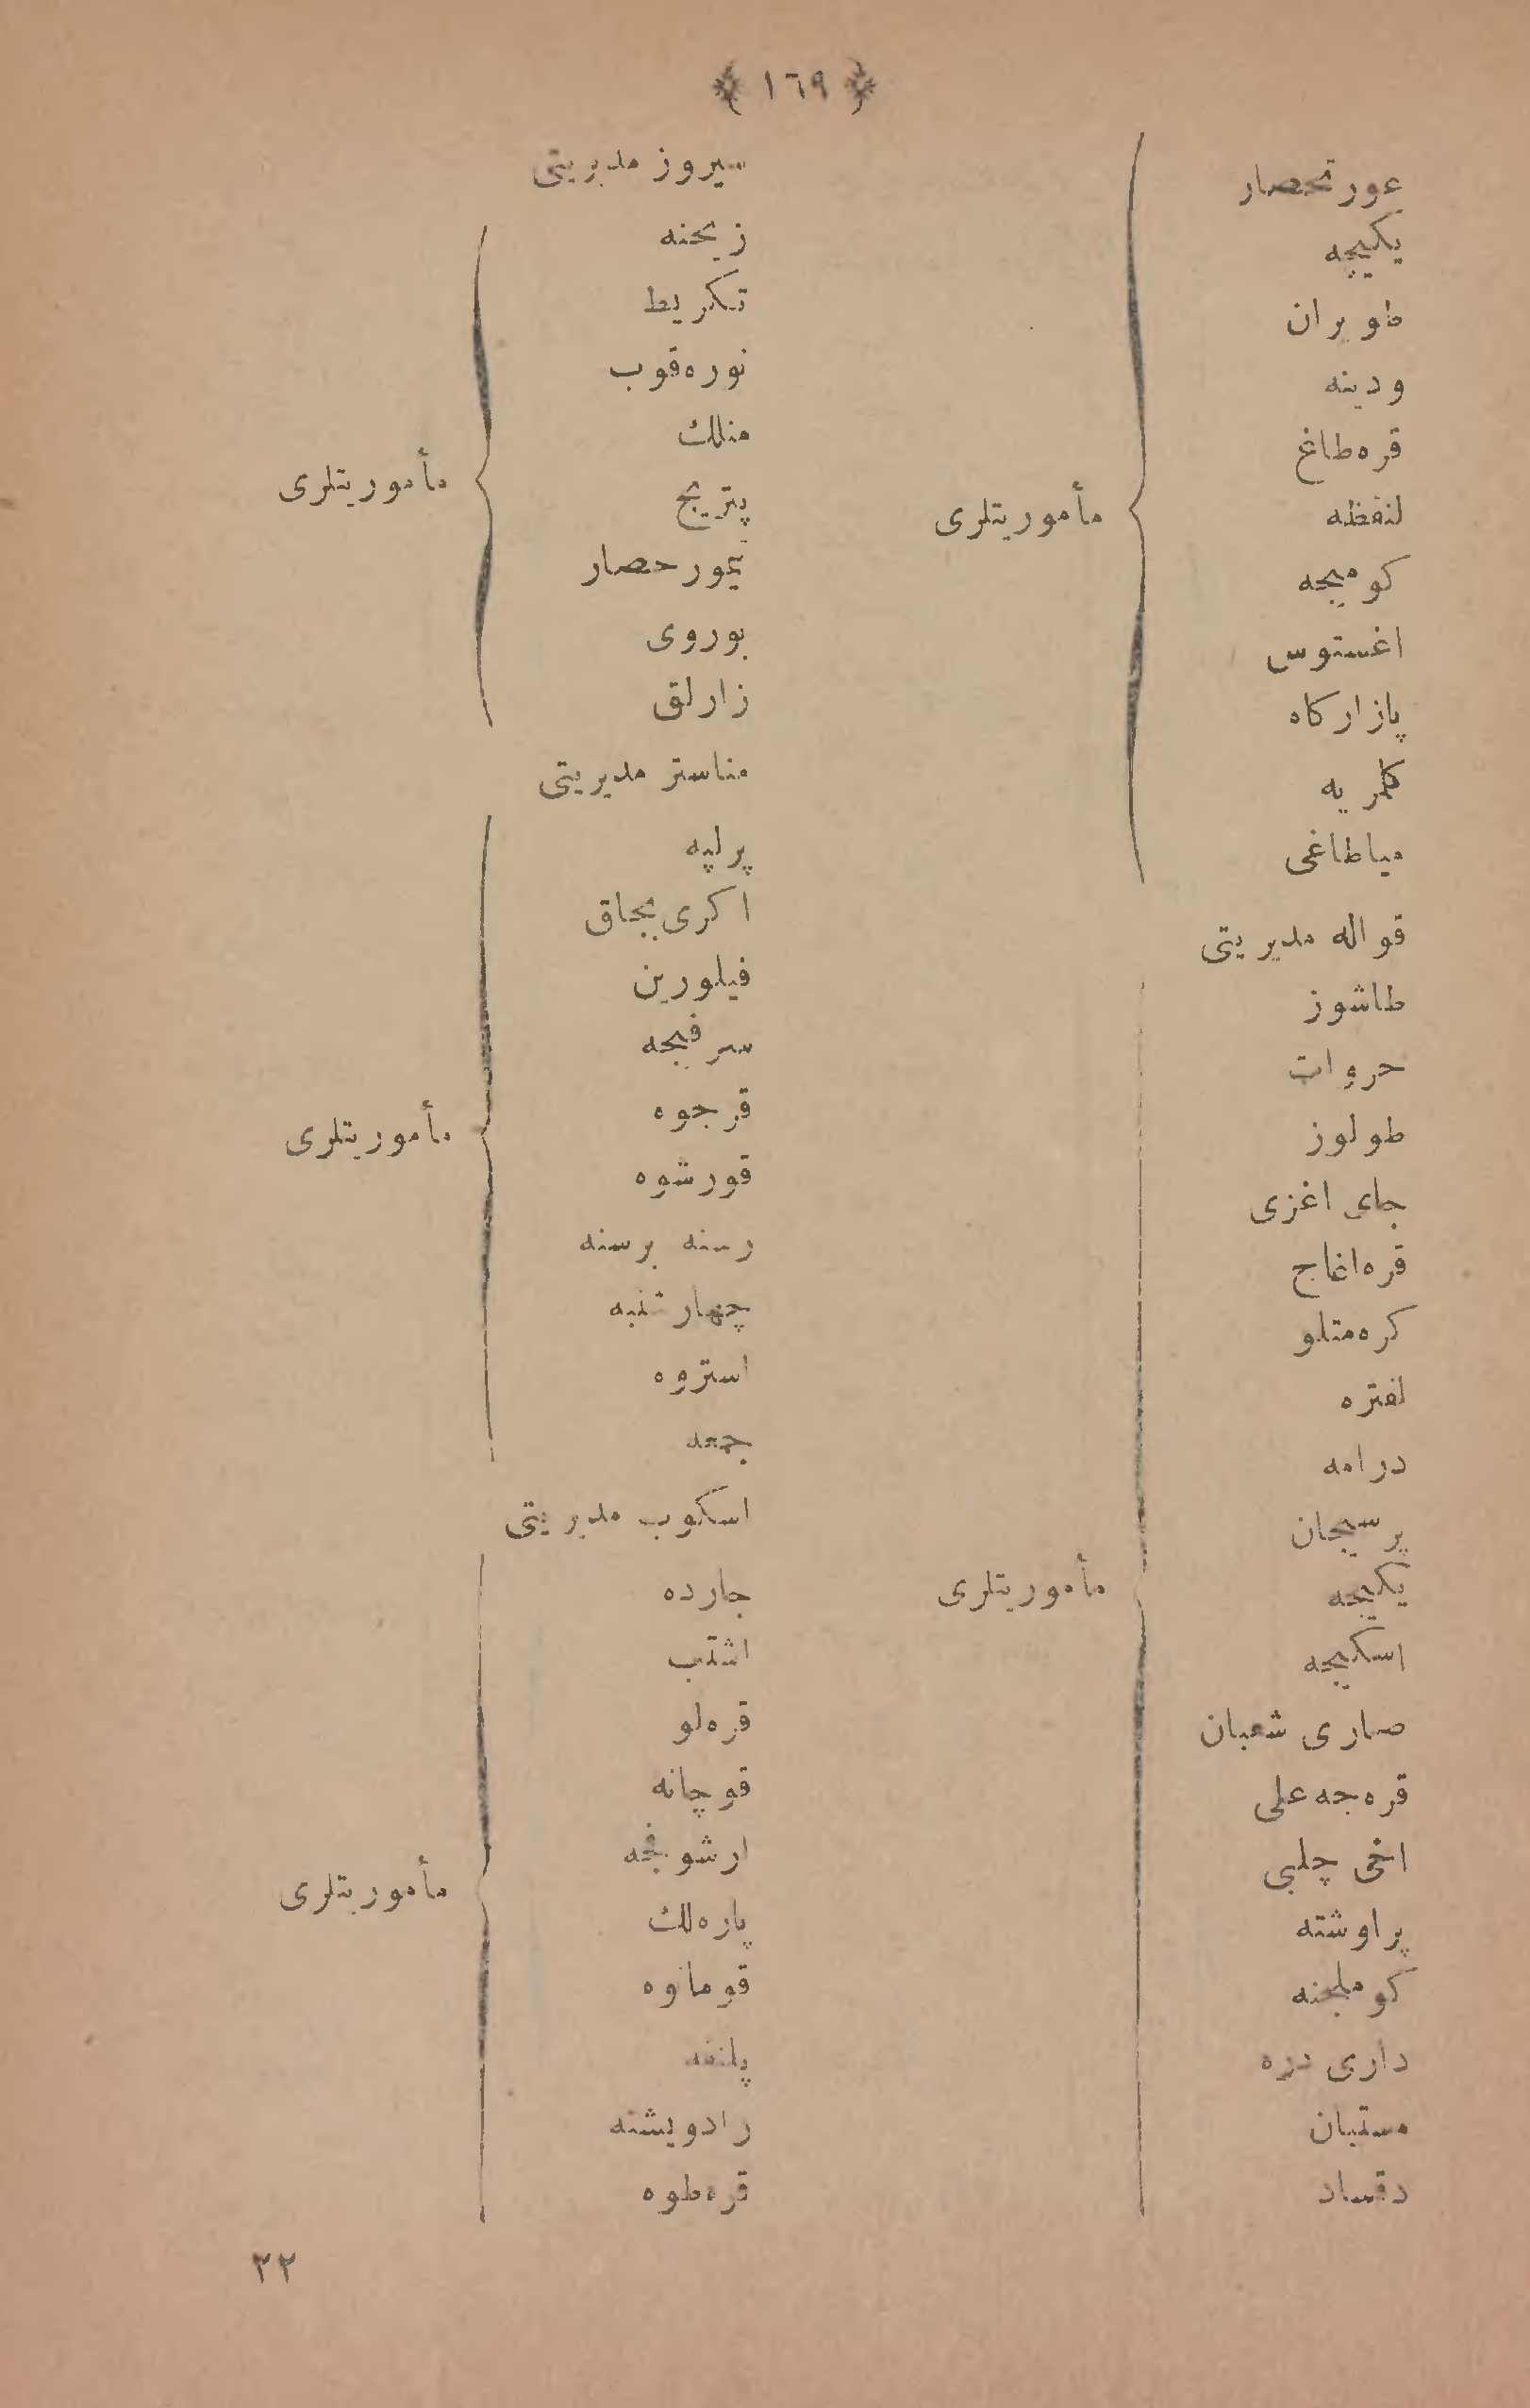 ١٦٩
عورتحصار
یکیجه
طویران
ودینه
قره‌طاغ
لنغظه
کومیجه
اغستوس
پازارکاه
کلمریه
میاطاغی
مأموریتلری
قواله مدیریتی
طاشوز
حروات
طولوز
جای اغزی
قره‌اغاج
کره‌متلو
لفتره
درامه
پرسیجان
یکیجه
اسکیجه
صاری شعبان
قره‌جه علی
اخی چلبی
پراوشته
کوملجنه
داری دره
مستبان
دقساد
مأموریتلری
سیروز مدیریتی
زیحنه
تکریط
نوره‌قوب
منلك
پتریج
تیمورحصار
بوروی
زارلق
مأموریتلری
مناستر مدیریتی
پرلپه
اکری بجاق
فیلورین
سرفیجه
قرجوه
قورشوه
رسنه برسنه
چهارشنبه
استروه
جمعه
مأموریتلری
اسکوب مدیریتی
جارده
اشتب
قره‌لو
قوچانه
ارشوفجه
پاره‌لك
قومانوه
پلنغه
رادویشته
قره‌طوه
مأموریتلری
٢٢